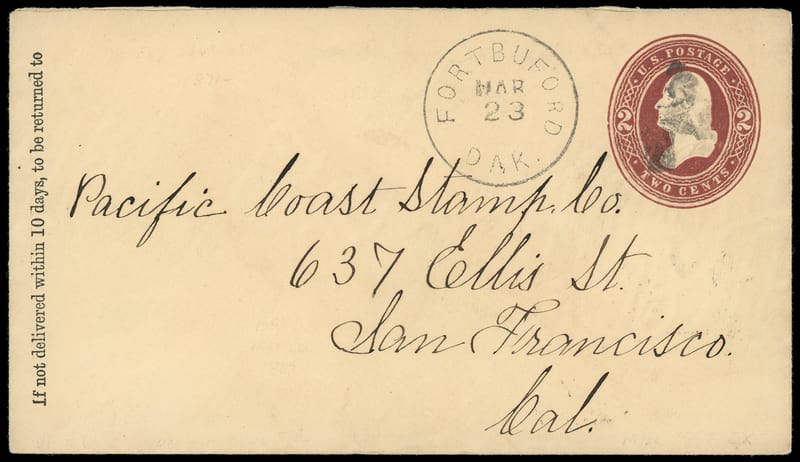 If not delivered within 10 days, to be returned to
FORT BUFORD
MAR
23
DAK.
U.S. POSTAGE
2 2
TWO CENTS
Pacific Coast Stamp. Co.
637 Ellis St.
San Francisco.
Cal.